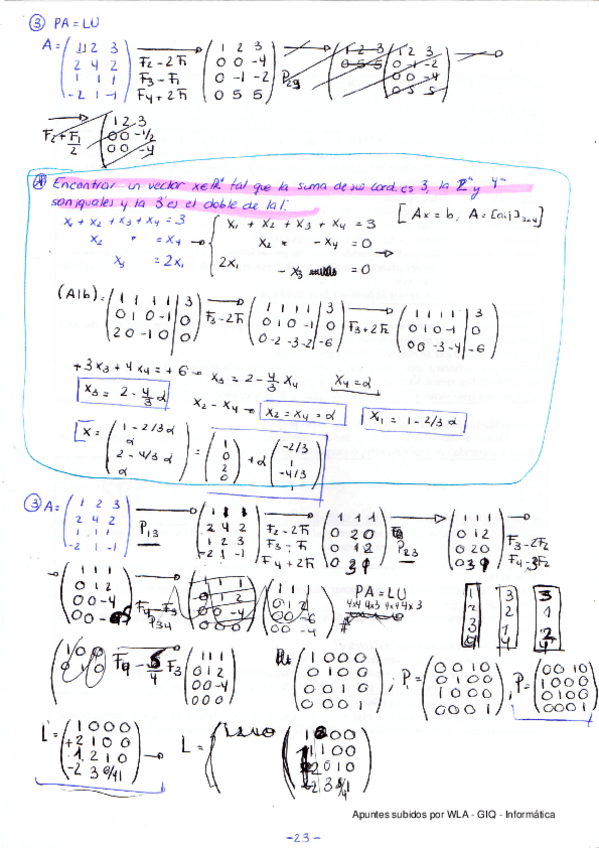 ③ PA = LU
A = (1 2 3 / 2 4 2 / 1 1 1 / -2 1 -1) F2 - 2F1 F3 - F1 F4 + 2F1 (1 2 3 / 0 0 -4 / 0 -1 -2 / 0 5 5) P23
F2 + F1/2 (1 2 3 / 0 0 -1/2 / 0 0 -4)
Encontrar un vector x∈ℝ⁴ tal que la suma de sus coord. es 3, la 2ª y 4ª
son iguales y la 3ª es el doble de la 1ª.
x1 + x2 + x3 + x4 = 3
x2 = x4
x3 = 2x1
x1 + x2 + x3 + x4 = 3 [Ax = b, A = [aij]3x4]
x2 - x4 = 0
2x1 - x3 = 0
(A|b) = (1 1 1 1 | 3 / 0 1 0 -1 | 0 / 2 0 -1 0 | 0) F3 - 2F1 (1 1 1 1 | 3 / 0 1 0 -1 | 0 / 0 -2 -3 -2 | -6) F3 + 2F2 (1 1 1 1 | 3 / 0 1 0 -1 | 0 / 0 0 -3 -4 | -6)
+3x3 + 4x4 = +6 → x3 = 2 - 4/3 x4 x4 = α
x3 = 2 - 4/3 α x2 - x4 → x2 = x4 = α x1 = 1 - 2/3 α
x = (1 - 2/3 α / α / 2 - 4/3 α / α) = (1 / 0 / 2 / 0) + α (-2/3 / 1 / -4/3 / 1)
③ A = (1 2 3 / 2 4 2 / 1 1 1 / -2 1 -1) P13 (1 1 1 / 2 4 2 / 1 2 3 / -2 1 -1) F2 - 2F1 F3 - F1 F4 + 2F1 (1 1 1 / 0 2 0 / 0 1 2 / 0 3 1) P23 (1 1 1 / 0 1 2 / 0 2 0 / 0 3 1) F3 - 2F2 F4 - 3F2
(1 1 1 / 0 1 2 / 0 0 -4) P34 PA = LU
4x4 4x3 4x4 4x3
F4 - 5/4 F3 (1 1 1 / 0 1 2 / 0 0 -4 / 0 0 0) (1 0 0 0 / 0 1 0 0 / 0 0 1 0 / 0 0 0 1) ; P1 = (0 0 1 0 / 0 1 0 0 / 1 0 0 0 / 0 0 0 1), P = (0 0 1 0 / 1 0 0 0 / 0 1 0 0 / 0 0 0 1)
L = (1 0 0 0 / +2 1 0 0 / 1 2 1 0 / -2 3 5/4 1) → L =
Apuntes subidos por WLA - GIQ - Informática
-23-